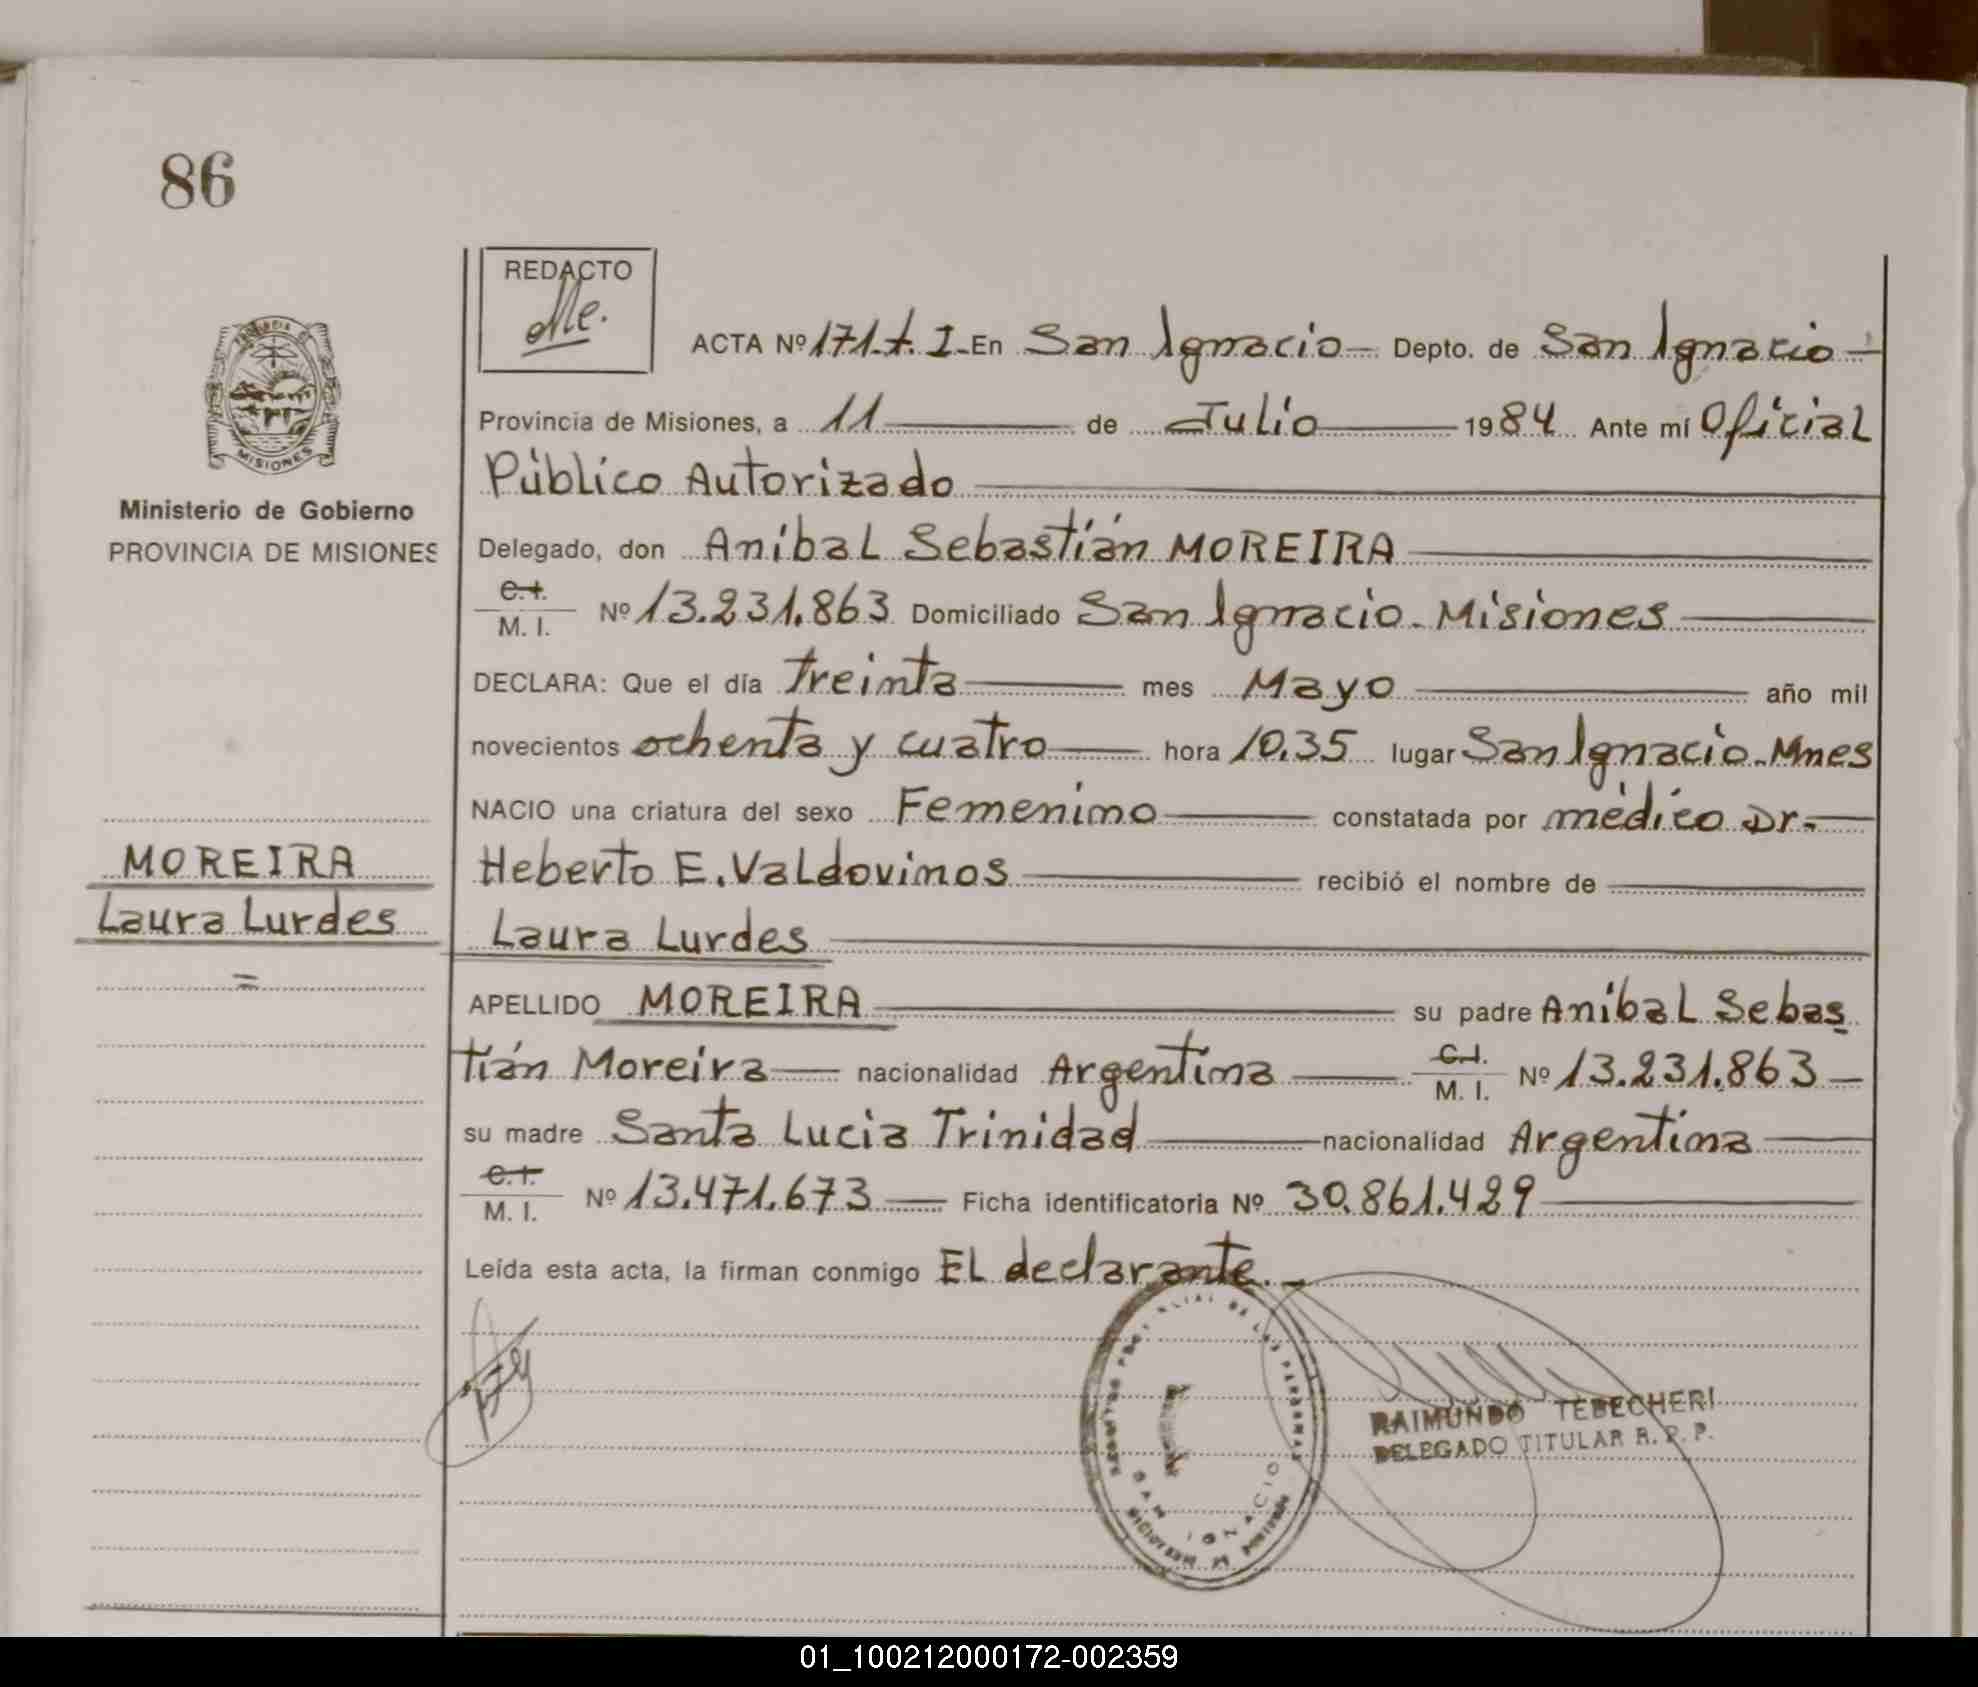 86
REDACTO
ACTA Nº 171.t.I. En San Ignacio Depto. de San Ignacio
Provincia de Misiones, a 11 de Julio 1984 Ante mí Oficial
Público Autorizado
Delegado, don Aníbal Sebastián MOREIRA
C.I.
M. I. Nº 13.231.863 Domiciliado San Ignacio. Misiones
DECLARA: Que el día treinta mes Mayo año mil
novecientos ochenta y cuatro hora 10.35 lugar San Ignacio. Mnes
NACIO una criatura del sexo Femenino constatada por médico Dr.
Heberto E. Valdovinos recibió el nombre de
Laura Lurdes
APELLIDO MOREIRA su padre Aníbal Sebas
tián Moreira nacionalidad Argentina C.I. M. I. Nº 13.231.863
su madre Santa Lucia Trinidad nacionalidad Argentina
C.I.
M. I. Nº 13.471.673 Ficha identificatoria Nº 30.861.429
Leída esta acta, la firman conmigo El declarante.
MISIONES
Ministerio de Gobierno
PROVINCIA DE MISIONES
MOREIRA
Laura Lurdes
SAN IGNACIO
RAIMUNDO TEBECHERI
DELEGADO TITULAR R. P. P.
01_100212000172-002359